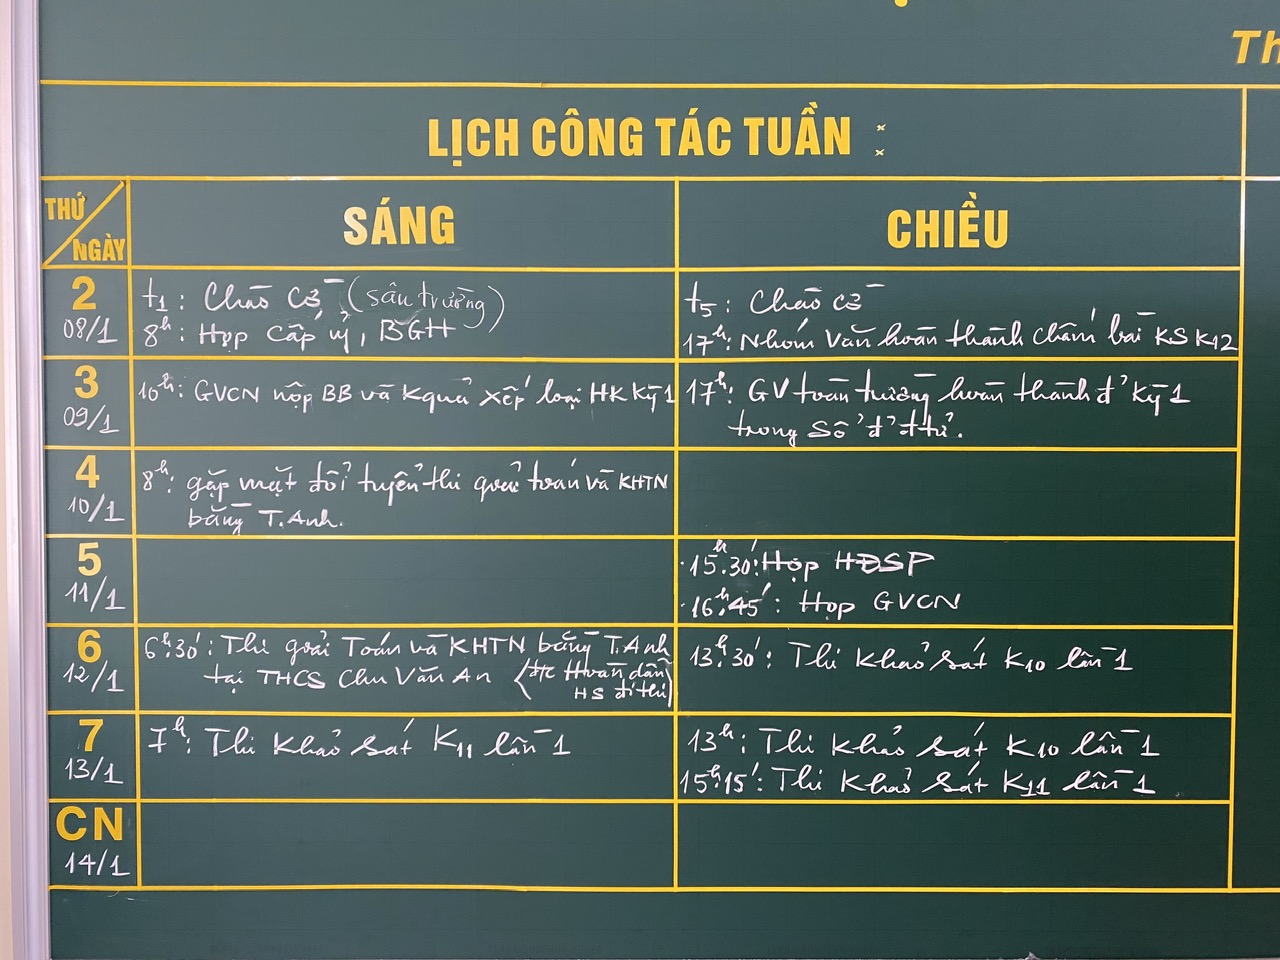 Th
LỊCH CÔNG TÁC TUẦN :
THỨ
NGÀY
SÁNG
CHIỀU
2
08/1
t1: Chào cờ (sân trường)
8h: Họp cấp uỷ, BGH
t5: Chào cờ
17h: Nhóm Văn hoàn thành chấm bài KS K12
3
09/1
10h: GVCN nộp BB và Kquả xếp loại HK kỳ 1
17h: GV toàn trường hoàn thành đ' kỳ 1
trong Sổ đ' đtử.
4
10/1
8h: gặp mặt đội tuyển thi giải toán và KHTN
bằng T.Anh.
5
11/1
15h30': Họp HĐSP
16h45': Họp GVCN
6
12/1
6h30': Thi giải Toán và KHTN bằng T.Anh
tại THCS Chu Văn An (đ/c Hoàn dẫn
HS đi thi)
13h30': Thi khảo sát K10 lần 1
7
13/1
7h: Thi khảo sát K11 lần 1
13h: Thi khảo sát K10 lần 1
15h15': Thi khảo sát K11 lần 1
CN
14/1